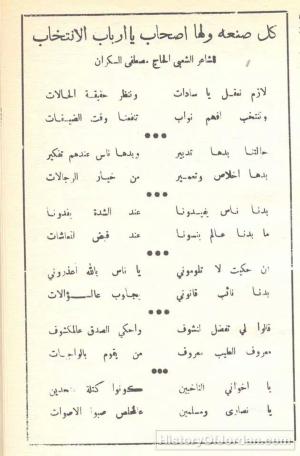 كل صنعه ولها اصحاب يا ارباب الانتخاب
للشاعر الشعبي الحاج مصطفى السكران
لازم نعقل يا سادات وننظر حقيقة الحالات
وننتخب افهم نواب تنفعنا وقت الضيقات
•••
حالتنا بدها تدبير وبدها ناس عندهم تفكير
بدها اخلاص وتعمير من خيار الرجالات
•••
بدنا ناس يفيدونا عند الشدة يفدونا
ما بدنا عالم ينسونا عند قبض المعاشات
•••
ان حكيت لا تلوموني يا ناس بالله اعذروني
بدنا نائب قانوني يجاوب عالسؤالات
•••
قالوا لي تفضل لنشوف واحكي الصدق عالمكشوف
معروف الطيب معروف من يقوم بالواجبات
•••
يا اخواني الناخبين كونوا كتلة متحدين
يا نصارى ومسلمين عالمخلص صبوا الاصوات
HistoryOfJordan.com